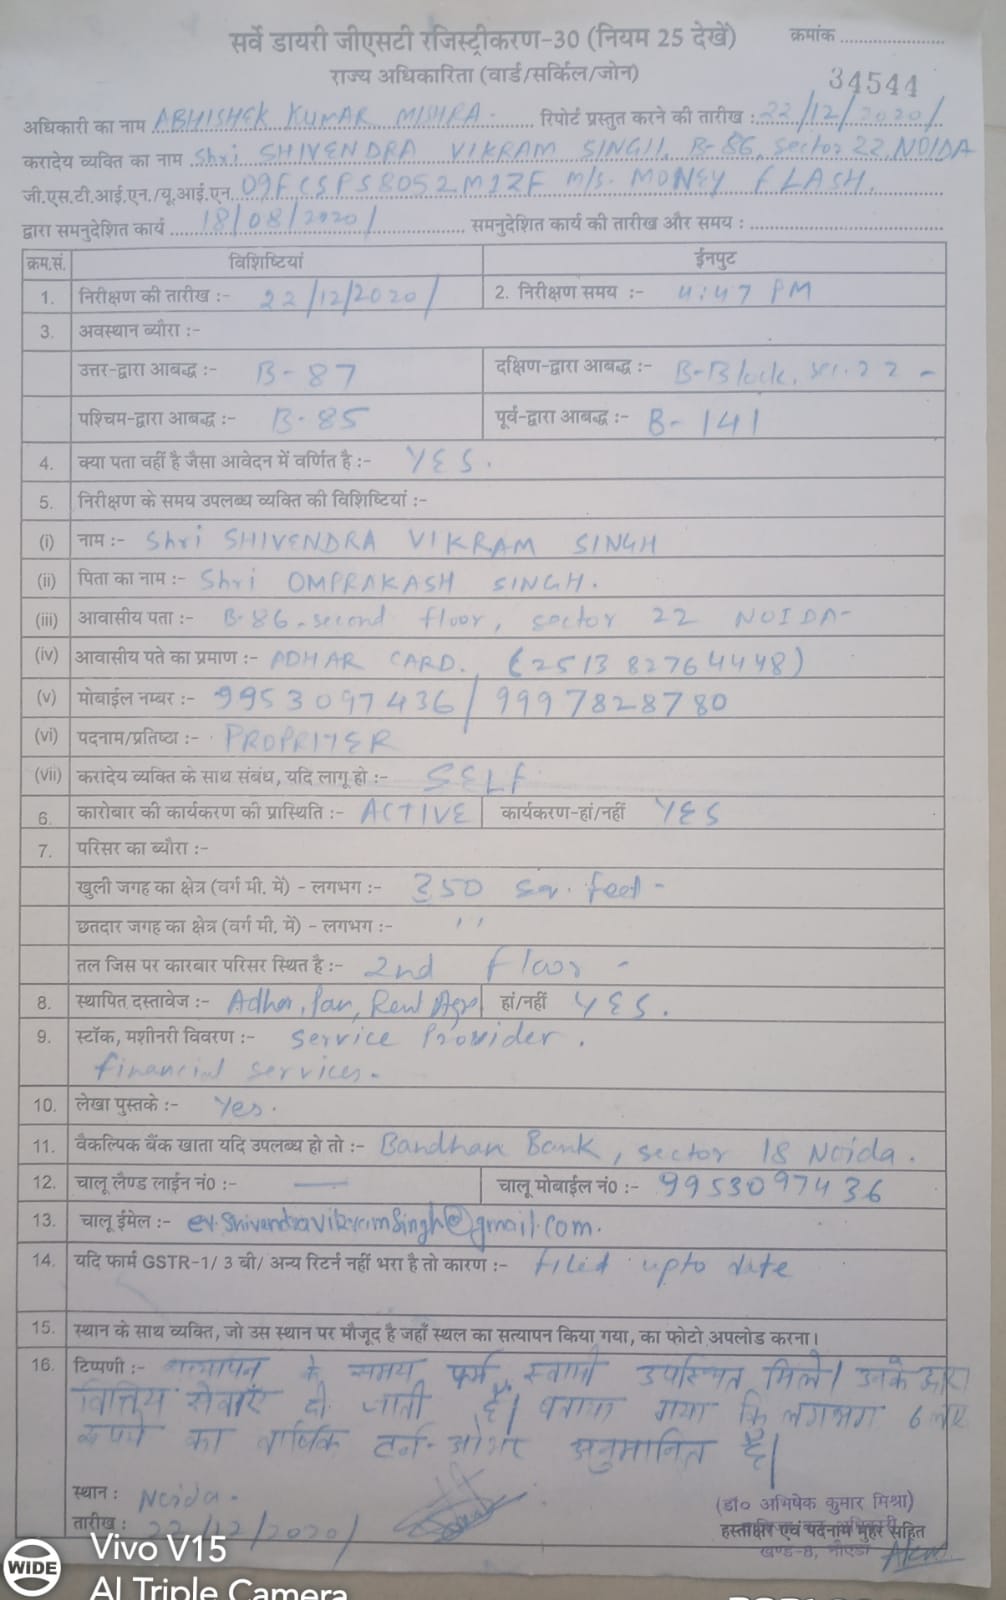 सर्वे डायरी जीएसटी रजिस्ट्रीकरण-30 (नियम 25 देखें) क्रमांक ....................
राज्य अधिकारिता (वार्ड/सर्किल/जोन) 34544
अधिकारी का नाम ABHISHEK KUMAR MISHRA. रिपोर्ट प्रस्तुत करने की तारीख : 22/12/2020/
करादेय व्यक्ति का नाम Shri SHIVENDRA VIKRAM SINGH, B-86, Sector 22, NOIDA
जी.एस.टी.आई.एन./यू.आई.एन. 09FCSPS8052M1ZF M/s. MONEY FLASH.
द्वारा समनुदेशित कार्य 18/08/2020/ समनुदेशित कार्य की तारीख और समय :
क्रम.सं. विशिष्टियां ईनपुट
1. निरीक्षण की तारीख :- 22/12/2020/ 2. निरीक्षण समय :- 4:47 PM
3. अवस्थान ब्यौरा :-
उत्तर-द्वारा आबद्ध :- B-87 दक्षिण-द्वारा आबद्ध :- B-Block, 22 -
पश्चिम-द्वारा आबद्ध :- B-85 पूर्व-द्वारा आबद्ध :- B-141
4. क्या पता वहीं है जैसा आवेदन में वर्णित है :- YES.
5. निरीक्षण के समय उपलब्ध व्यक्ति की विशिष्टियां :-
(i) नाम :- Shri SHIVENDRA VIKRAM SINGH
(ii) पिता का नाम :- Shri OMPRAKASH SINGH.
(iii) आवासीय पता :- B-86, second floor, sector 22 NOIDA-
(iv) आवासीय पते का प्रमाण :- ADHAR CARD. (2513 8276 4448)
(v) मोबाईल नम्बर :- 9953097436/9997828780
(vi) पदनाम/प्रतिष्ठा :- PROPRITER
(vii) करादेय व्यक्ति के साथ संबंध, यदि लागू हो :- SELF
6. कारोबार की कार्यकरण की प्रास्थिति :- ACTIVE कार्यकरण-हां/नहीं YES
7. परिसर का ब्यौरा :-
खुली जगह का क्षेत्र (वर्ग मी. में) - लगभग :- 350 Sq. feet -
छतदार जगह का क्षेत्र (वर्ग मी. में) - लगभग :- ''
तल जिस पर कारबार परिसर स्थित है :- 2nd Floor -
8. स्थापित दस्तावेज :- Adhar, Pan, Rent Agr हां/नहीं YES.
9. स्टॉक, मशीनरी विवरण :- Service Provider.
financial services.
10. लेखा पुस्तके :- Yes.
11. वैकल्पिक बैंक खाता यदि उपलब्ध हो तो :- Bandhan Bank, sector 18 Noida.
12. चालू लैण्ड लाईन नं0 :- — चालू मोबाईल नं0 :- 9953097436
13. चालू ईमेल :- er.shivendravikramsingh@gmail.com.
14. यदि फार्म GSTR-1/ 3 बी/ अन्य रिटर्न नहीं भरा है तो कारण :- filed upto date
15. स्थान के साथ व्यक्ति, जो उस स्थान पर मौजूद है जहाँ स्थल का सत्यापन किया गया, का फोटो अपलोड करना।
16. टिप्पणी :- सत्यापन के समय फर्म स्वामी उपस्थित मिले। उनके द्वारा
वित्तिय सेवाएं दी जाती हैं। बताया गया कि लगभग 6 लाख
रूपये का वार्षिक टर्न-ओवर अनुमानित है।
स्थान : Noida.
तारीख : 22/12/2020/
(डॉ० अभिषेक कुमार मिश्रा)
हस्ताक्षर एवं पदनाम मुहर सहित
खण्ड-8, नोएडा
WIDE Vivo V15
AI Triple Camera